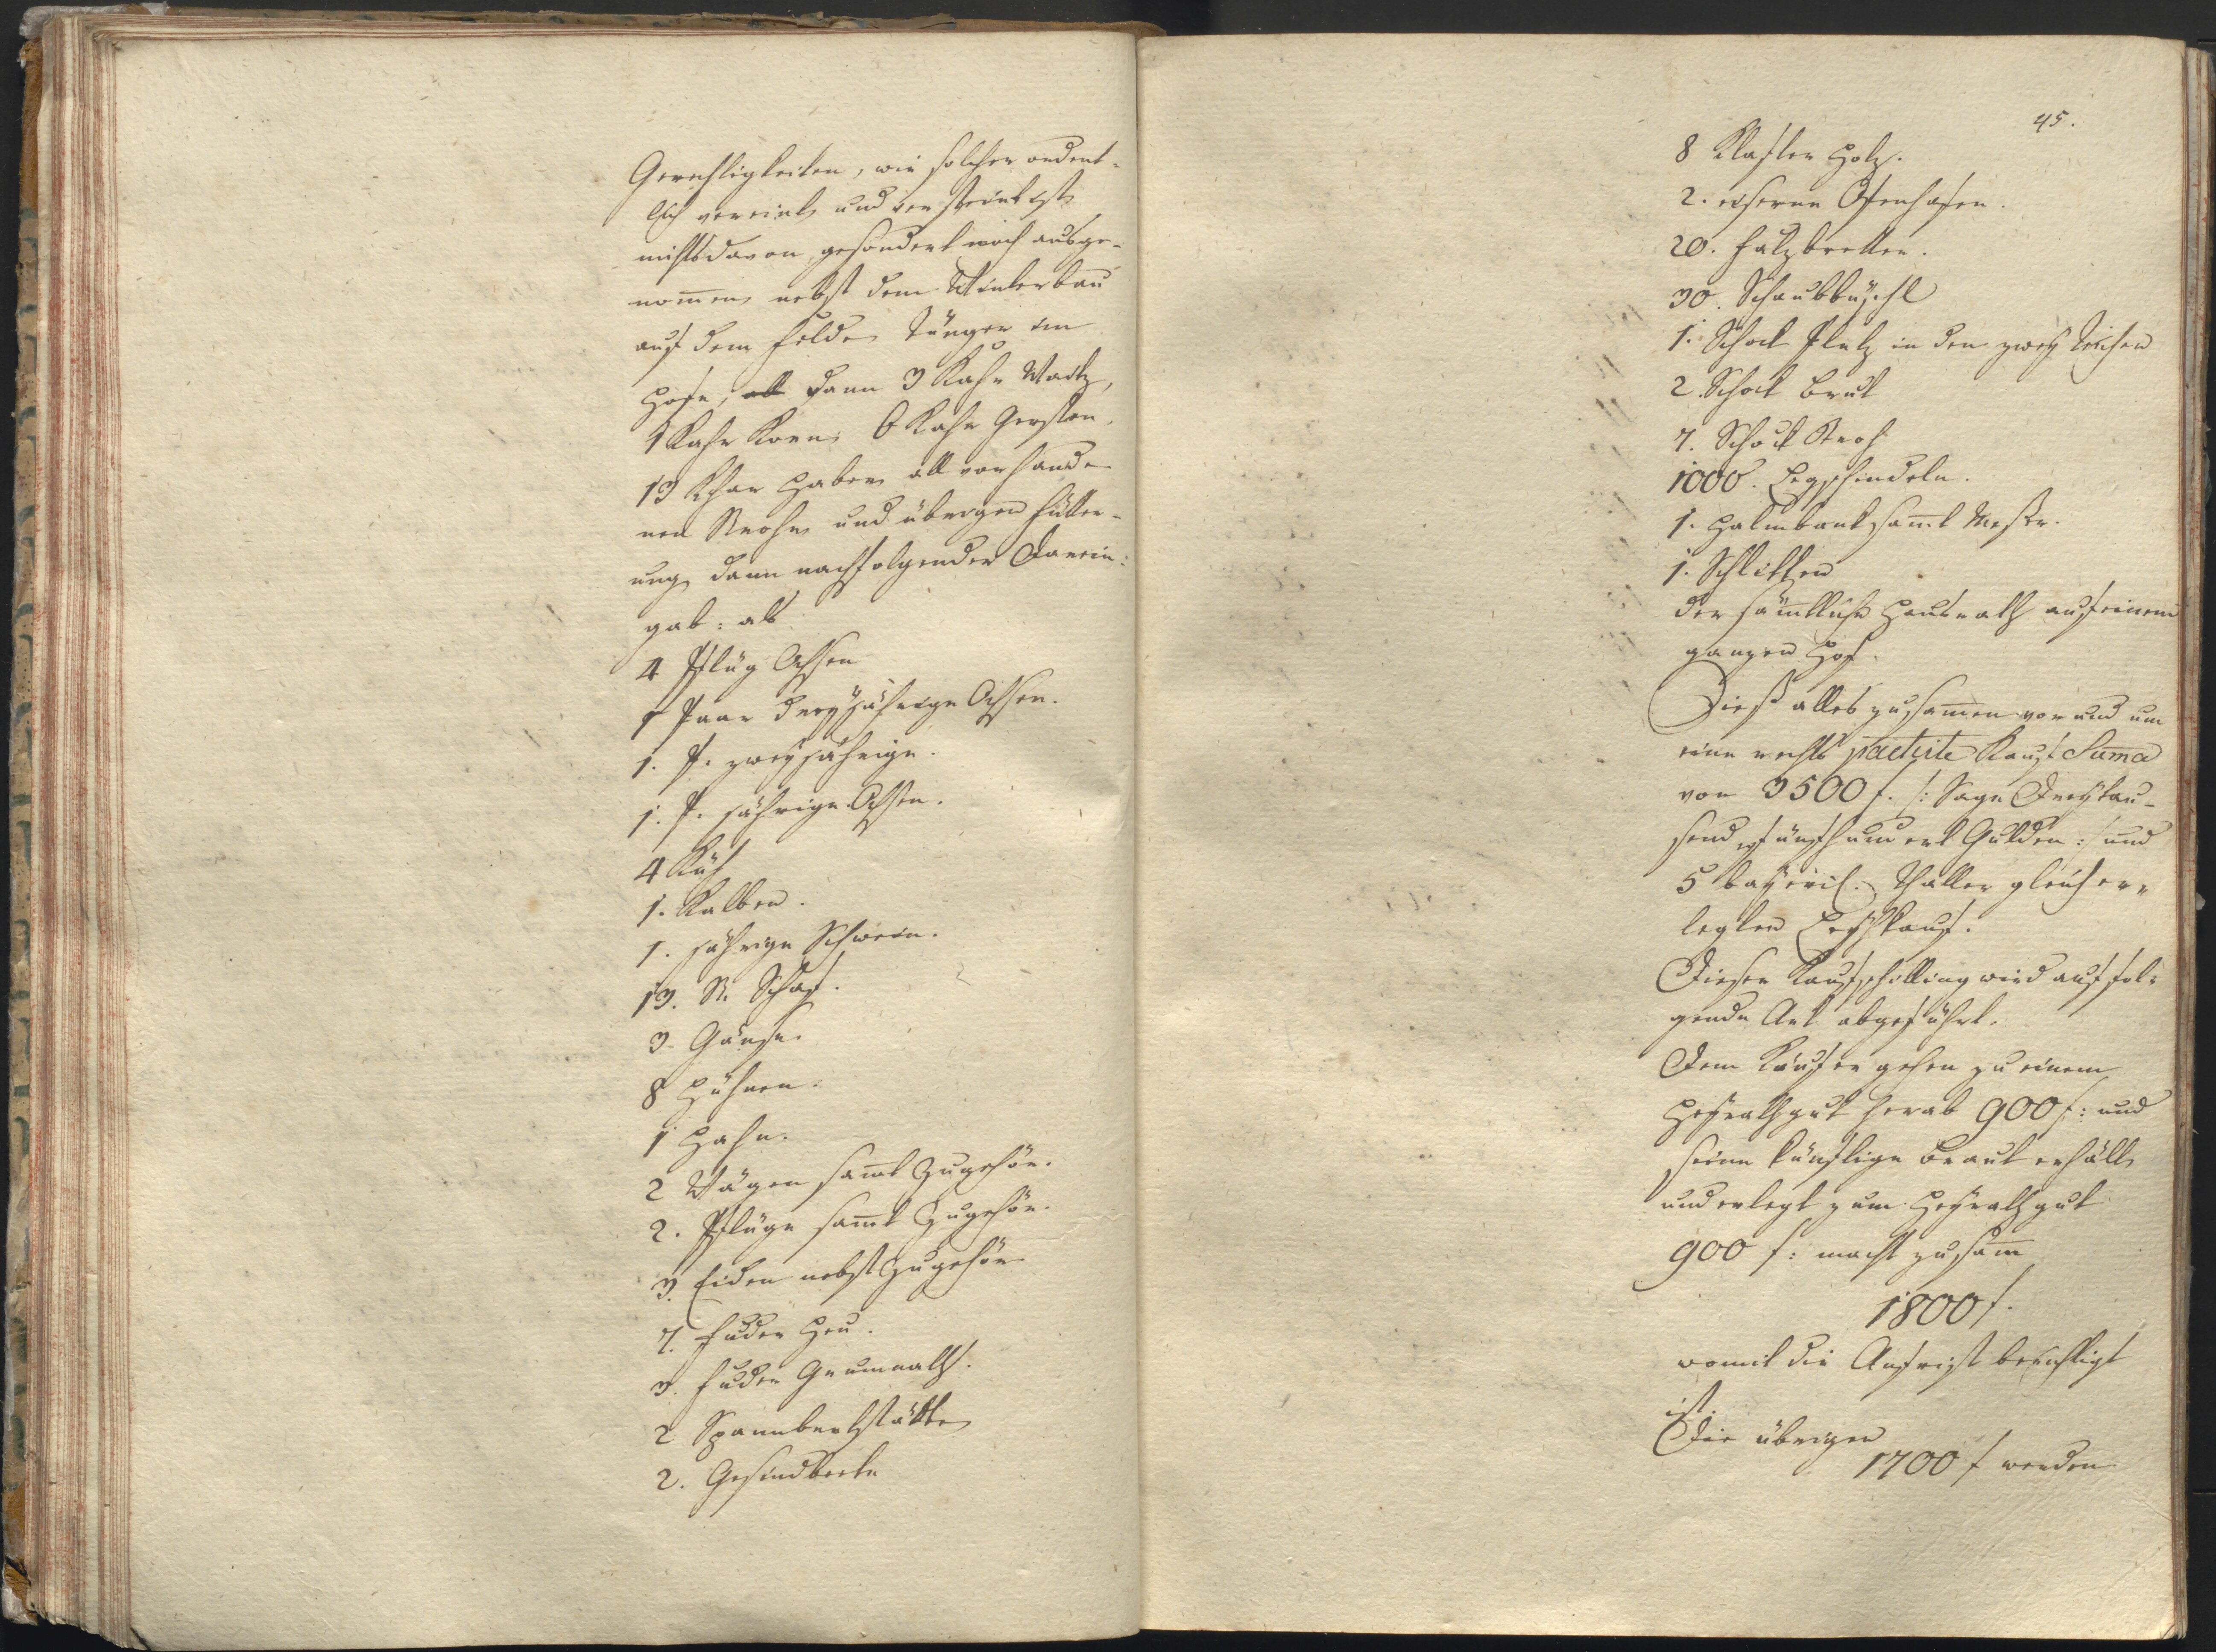 Gerechtigkeiten, wie solcher ordent-
lich vereint, und versteint ist
nichts davon gesondert noch ausge-
nom̄en, nebst dem Winterbau
auf dem Felde, Dünger im
Hofe, all dann 3 Kahr Waitz,
1 Kahr Korn, 6 Kahr Gersten,
13 Khar Haber, all vorhande-
nen Strohe, und übrigen Fütter-
ung, dann nachfolgender Darein:
gab: als
4 Pflug Ochsen
1 Paar dreyjährige Ochsen.
1. P. zweyjährige.
1. P. jährige Ochsen.
4 Küh
1. Kalben.
1. jährige Schwein.
13. St. Schaf.
3. Gänse.
8 Hühner.
1 Hahn.
2 Wägen sam̄t Zugehör.
2. Pflüge sam̄t Zugehör.
3. Eiden nebst Zugehör
7. Fuder Heu.
3. Fuder Grummath.
2 Spannbethstätte
2. Gesindbeete
45.
8 Klafter Holz.
2. eiserne Ofenhafen.
20. Falzbretter.
30. Schaubbüschl
1. Schock Pletz in den zwey Teichen
2. Schock Brut
7. Schock Stroh
1000. Legschindeln.
1. Halmbank sam̄t Messer.
1. Schlitten
der säm̄tliche Hausrath auf einem
ganzen Hof.
Dieß alles zusam̄en vor und um
eine rechts pactirte Kauf Sum̄a
von 3500 f. /: Sage Dreytau-
send fünfhundert Gulden :/ und
5 bayeris. Thaller gleich er-
legten Leyhkauf.
Dieser Kaufschilling wird auf fol-
gende Art abgeführt.
Dem Käufer gehen zu einem
Heyrathgut herab 900 f: und
seine künftige Braut erhällt,
und erlegt zum Heyrathgut
900 f: macht zusam̄
1800 f.
womit die Anfrist berichtigt
ist.
Die übrigen
1700 f werden